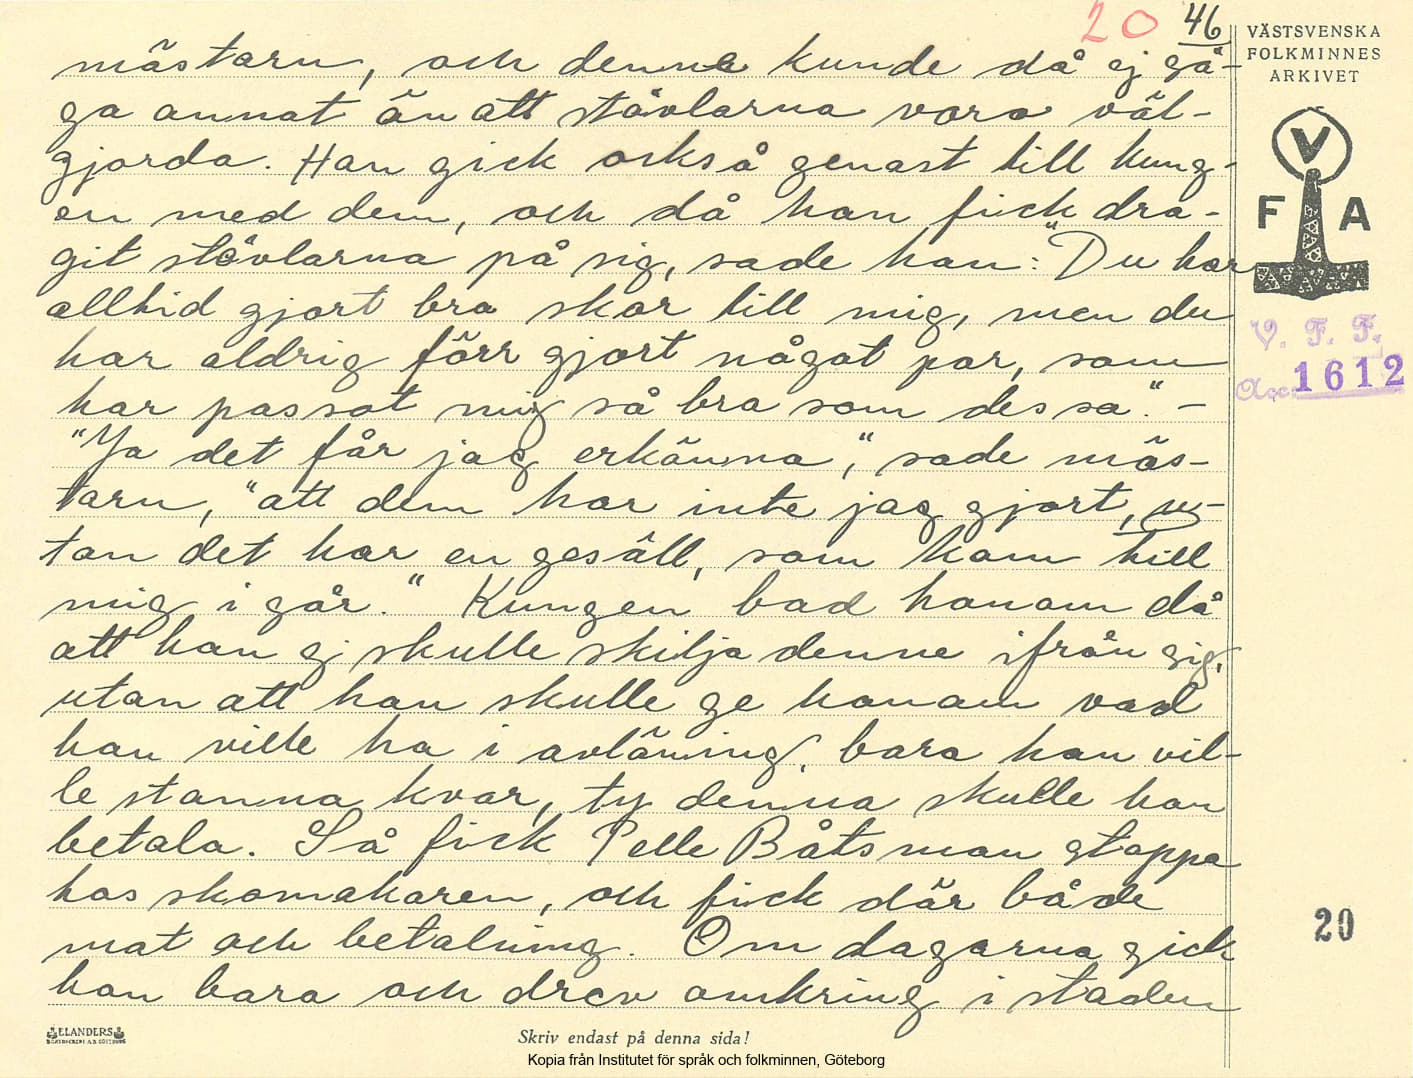 20 46
VÄSTSVENSKA
FOLKMINNES
ARKIVET
V
F A
V. F. F.
Acc. 1612
mästarn, och denna kunde då ej sä-
ga annat än att stövlarna voro väl-
gjorda. Han gick också genast till kung-
en med dem, och då han fick dra-
git stövlarna på sig, sade han: "Du har
alltid gjort bra skor till mig, men du
har aldrig förr gjort något par, som
har passat mig så bra som dessa." -
"Ja det får jag erkänna," sade mäs-
tarn, "att dem har inte jag gjort, u-
tan det har en gesäll, som kom till
mig i går." Kungen bad honom då
att han ej skulle skilja denne ifrån sig,
utan att han skulle ge honom vad
han ville ha i avlöning, bara han vil-
le stanna kvar, ty denna skulle han
betala. Så fick Pelle Båtsman stoppa
hos skomakaren, och fick där både
mat och betalning. Om dagarna gick
han bara och drev omkring i staden
20
ELANDERS
BOKTRYCKERI A.B. GÖTEBORG
Skriv endast på denna sida!
Kopia från Institutet för språk och folkminnen, Göteborg